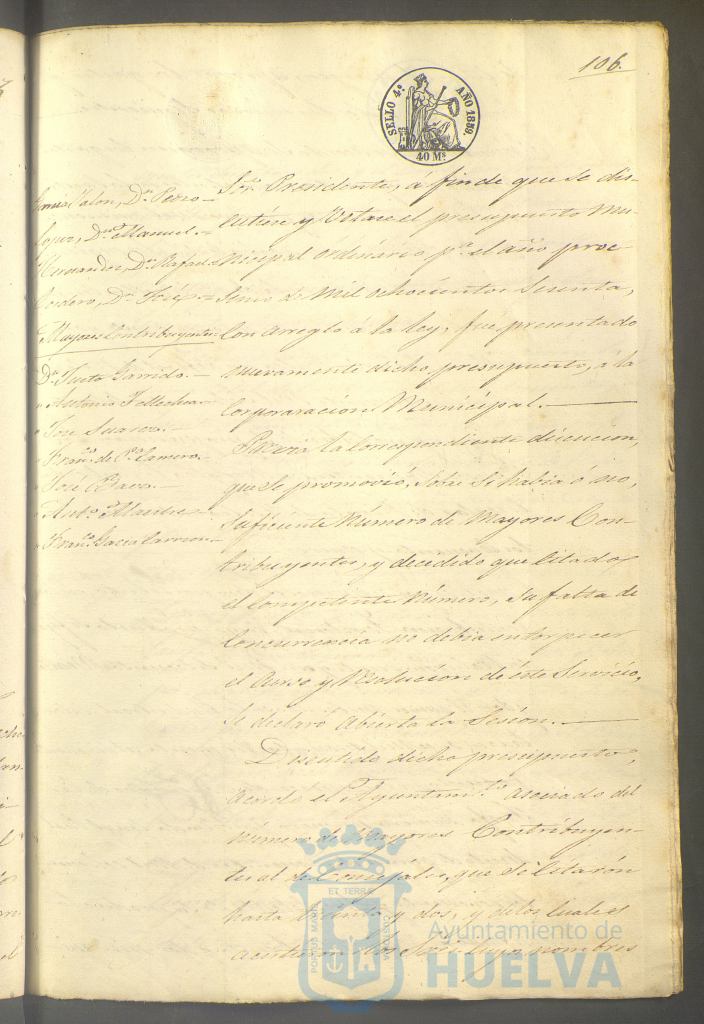 106.
SELLO 4º AÑO 1859.
40 Ms
Gomez Colon, Dn. Pedro
Lopez, Dn. Manuel
Hernandez, Dn. Rafael
Cordero, Dn. José
Mayores Contribuyentes
Dn. Justo Garrido.
" Antonio Tellechea
" Jose Suarez.
" Franco. de Pa. Camero.
" José Baco.
" Anto.
" Franco. Garcia Carrion
Sor. Presidente, á fin de que se dis-
cutiere y votare el presupuesto Mu-
nicipal ordinario pa. el año proc-
simo de Mil ochocientos Sesenta,
Con arreglo á la ley, fué presentado
nuevamente dicho presupuesto, á la
Corporacion Municipal.
Previa la Correspondiente discucion,
que se promovió, sobre si habia ó no,
suficiente Número de Mayores Con-
tribuyentes, y decidido que citados
el Competente Número, su falta de
Concurrencia no debia entorpecer
el Curso y resolucion de éste Servicio,
se declaró Abierta la Sesion.
Discutido dicho presupuesto,
acordó el Ayuntamto. asociado del
Número de Mayores Contribuyen-
tes al de Concejales, que se citarón
hasta treinta y dos, y de los cuales
acistieron los Seis cuyos nombres
ET TERRAE
PORTUS MARIS
CUSTODIA
Ayuntamiento de
HUELVA